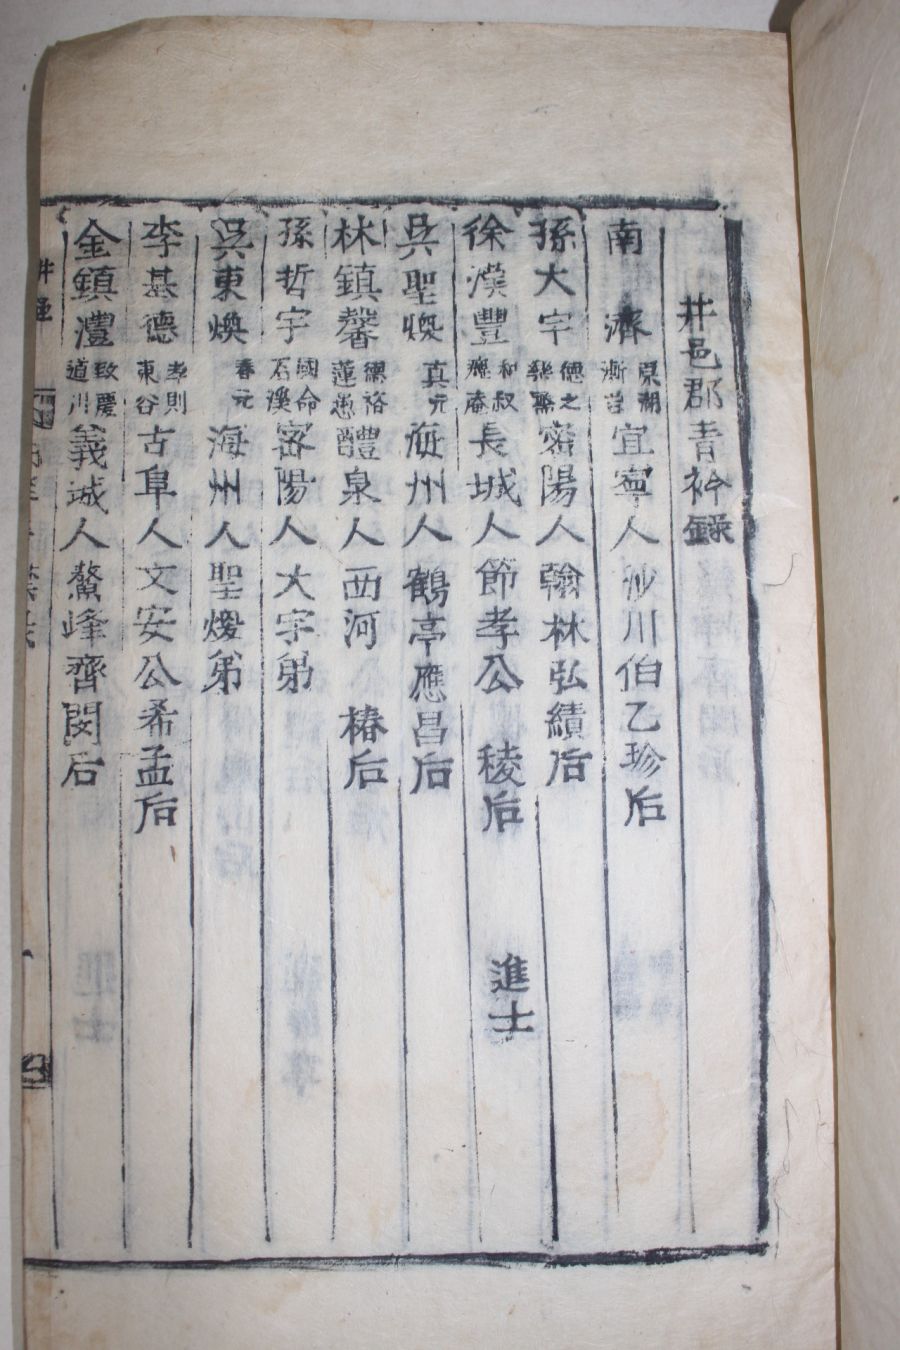 井邑郡青衿錄
南 濟 宜寧人 沙川伯乙珍后
孫大宇 德之 密陽人 翰林弘績后
徐漢豐 和叔 庵 長城人 節孝公 稜后 進士
吳聖煥 真元 海州人 鶴亭應昌后
林鎮馨 德裕 蓮愚 醴泉人 西河 椿后
孫哲宇 國命 石溪 密陽人 大宇弟
吳東煥 春元 海州人 聖煥弟
李基德 孝則 東谷 古阜人 文安公希孟后
金鎮灃 致慶 道川 義城人 鰲峰齊閔后
井邑